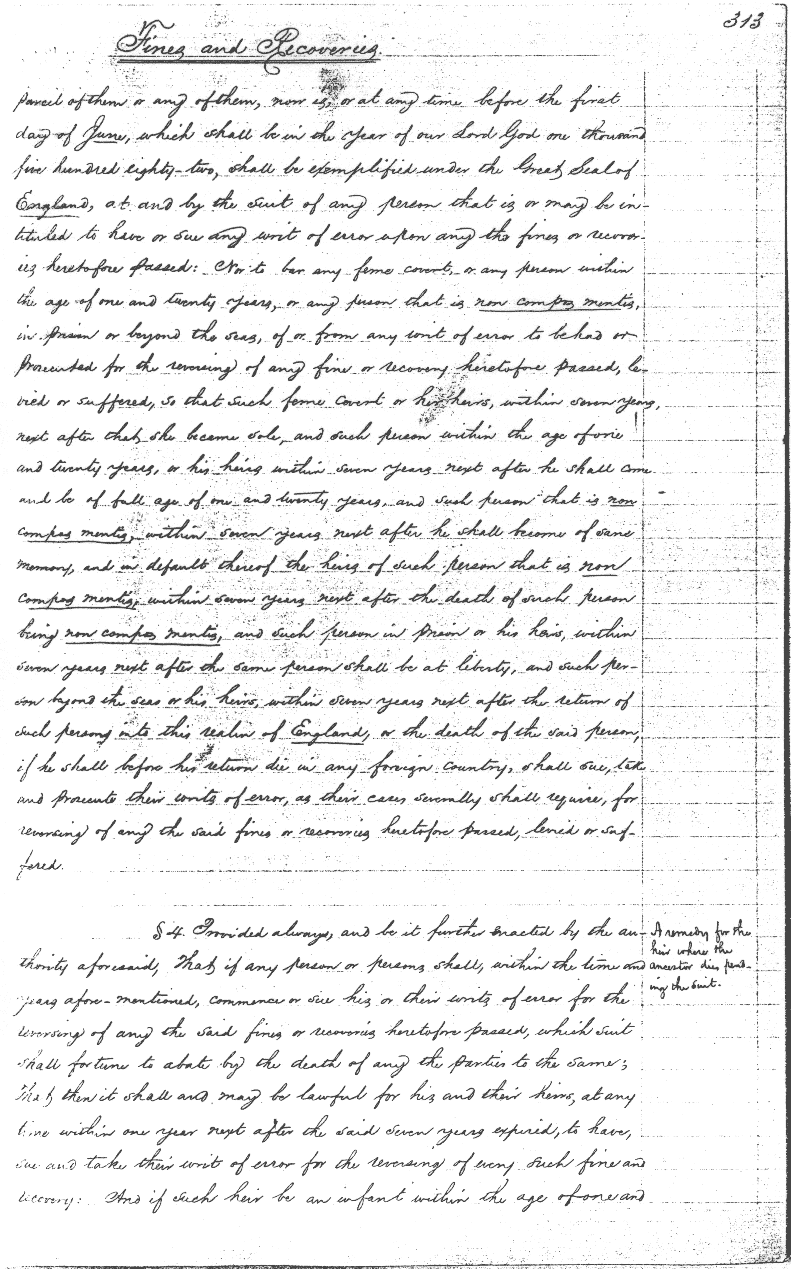 313
Fines and Recoveries.
parcel of them or any of them, now is, or at any time before the first
day of June, which shall be in the year of our Lord God one thousand
five hundred eighty-two, shall be exemplified under the Great Seal of
England, at and by the suit of any person that is or may be in-
tituled to have or sue any writ of error upon any the fines or recover-
ies heretofore passed: Nor to bar any feme covert, or any person within
the age of one and twenty years, or any person that is non compos mentis,
in prison or beyond the seas, of or from any writ of error to be had or
prosecuted for the reversing of any fine or recovery heretofore passed, le-
vied or suffered, so that such feme covert or her heirs, within seven years,
next after that she become sole, and such person within the age of one
and twenty years, or his heirs within seven years next after he shall come
and be of full age of one and twenty years, and such person that is non
compos mentis, within seven years next after he shall become of sane
memory, and in default thereof the heirs of such person that is non
compos mentis, within seven years next after the death of such person
being non compos mentis, and such person in prison or his heirs, within
seven years next after the same person shall be at liberty, and such per-
son beyond the seas or his heirs, within seven years next after the return of
such persons into this realm of England, or the death of the said person,
if he shall before his return die in any foreign country, shall sue, take
and prosecute their writs of error, as their cases severally shall require, for
reversing of any the said fines or recoveries heretofore passed, levied or suf-
fered.
§4. Provided always, and be it further enacted by the au-
thority aforesaid, That if any person or persons shall, within the time and
years afore-mentioned, commence or sue his or their writs of error for the
reversing of any the said fines or recoveries heretofore passed, which suit
shall fortune to abate by the death of any the parties to the same;
That then it shall and may be lawful for his and their heirs, at any
time within one year next after the said seven years expired, to have,
sue and take their writ of error for the reversing of every such fine and
recovery: And if such heir be an infant within the age of one and
A remedy for the
heir where the
ancestor dies pend-
ing the suit.